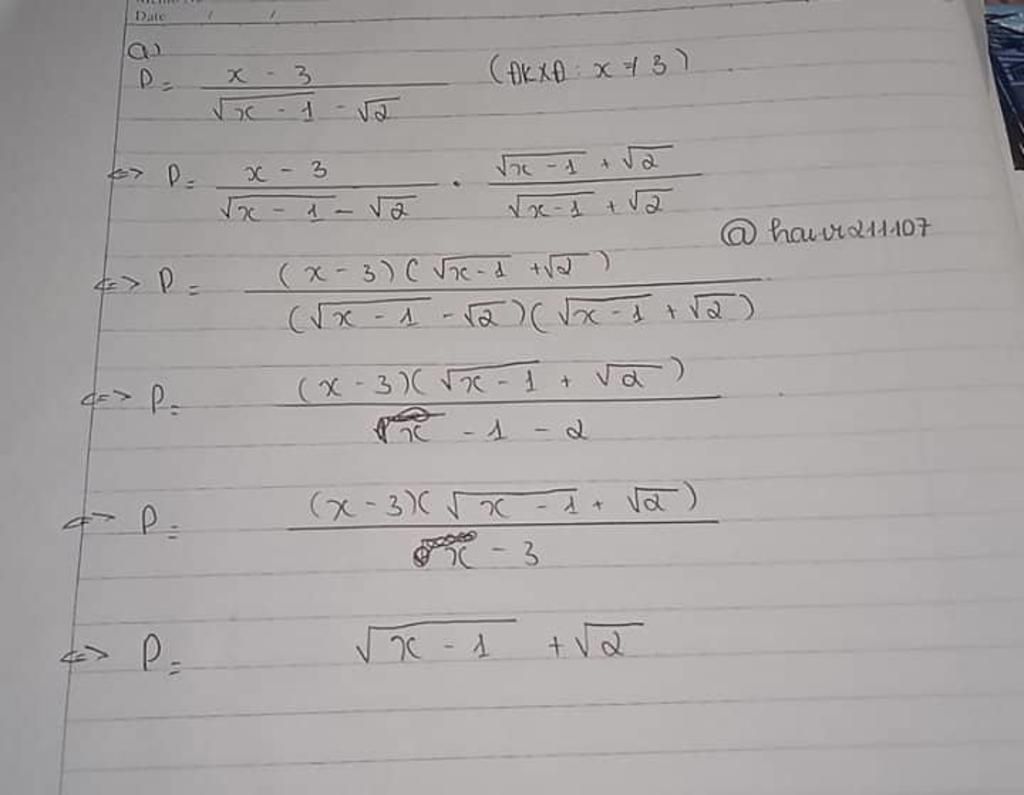 Date / /
a)
P = \frac{x - 3}{\sqrt{x - 1} - \sqrt{2}} (ĐKXĐ: x ≠ 3)
<=> P = \frac{x - 3}{\sqrt{x - 1} - \sqrt{2}} . \frac{\sqrt{x - 1} + \sqrt{2}}{\sqrt{x - 1} + \sqrt{2}}
@havr211107
<=> P = \frac{(x - 3)(\sqrt{x - 1} + \sqrt{2})}{(\sqrt{x - 1} - \sqrt{2})(\sqrt{x - 1} + \sqrt{2})}
<=> P = \frac{(x - 3)(\sqrt{x - 1} + \sqrt{2})}{x - 1 - 2}
<=> P = \frac{(x - 3)(\sqrt{x - 1} + \sqrt{2})}{x - 3}
<=> P = \sqrt{x - 1} + \sqrt{2}